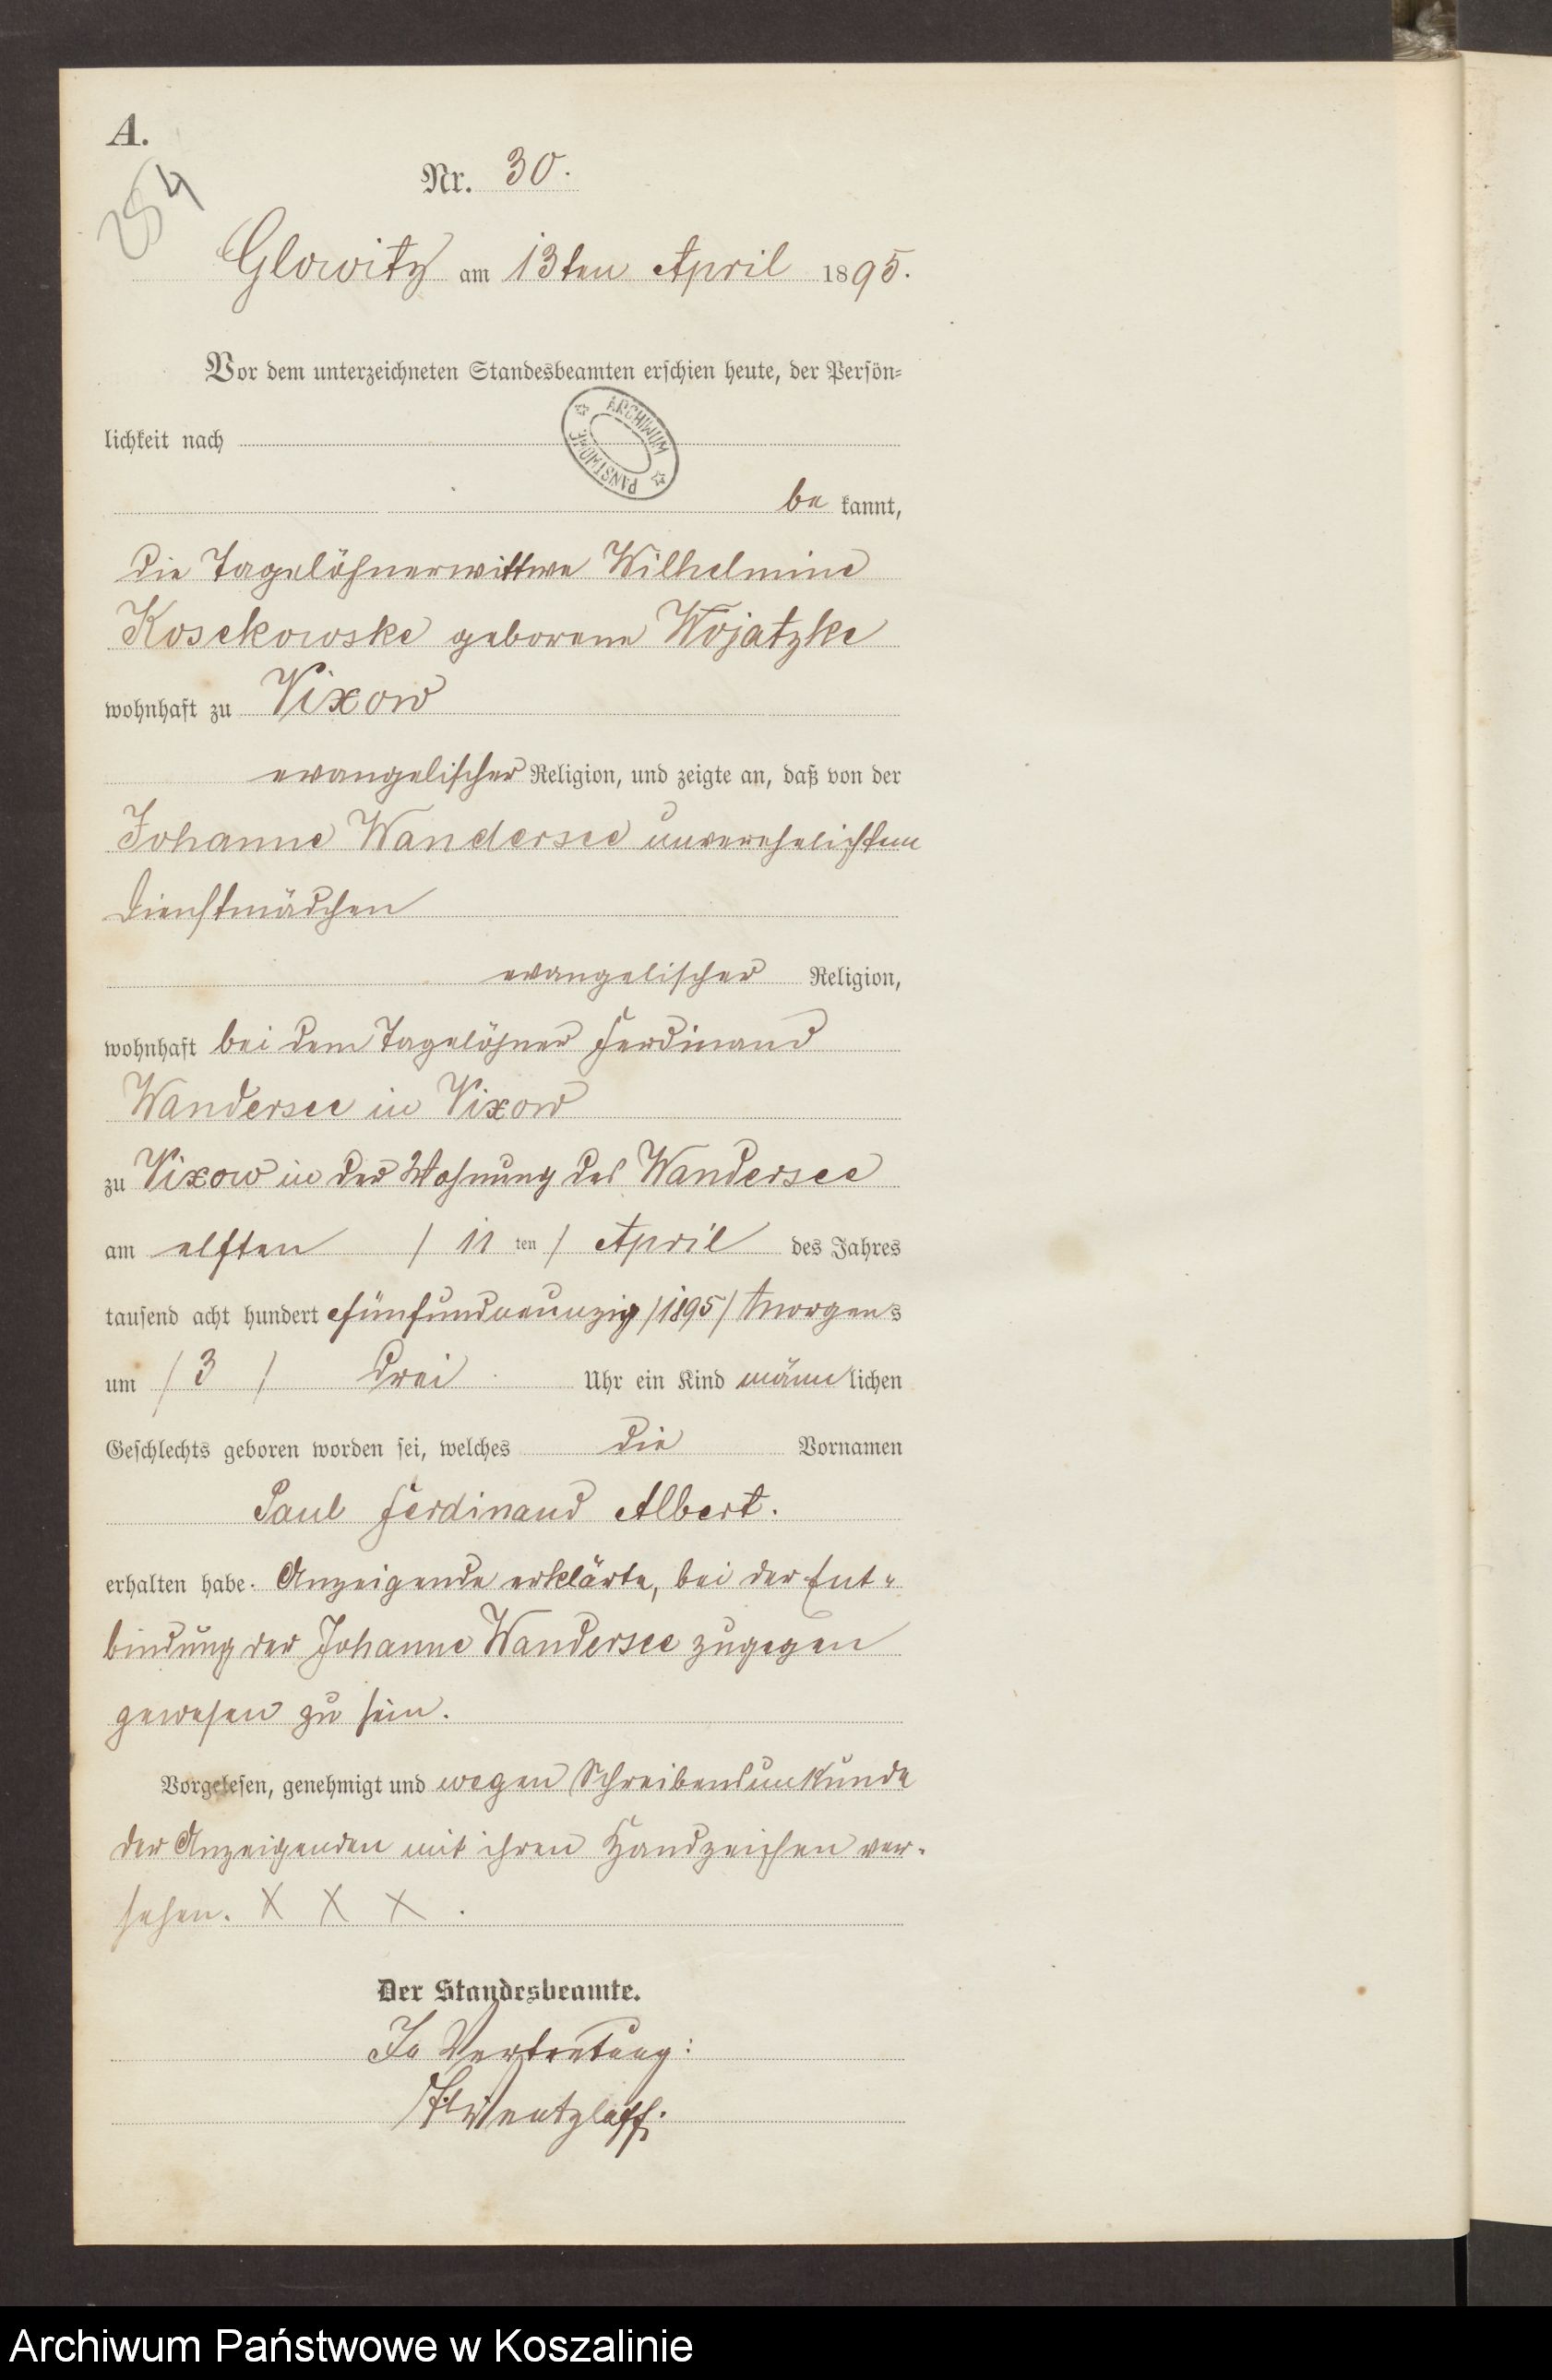 A.
254
Nr. 30.
Glowitz am 13ten April 1895.
Vor dem unterzeichneten Standesbeamten erschien heute, der Persön-
lichkeit nach
ARCHIWUM PAŃSTWOWE
be kannt,
die Tagelöhnerwittwe Wilhelmine
Kosekowske geborene Wojatzke
wohnhaft zu Vixow
evangelischer Religion, und zeigte an, daß von der
Johanne Wandersee unverehelichten
Dienstmädchen
evangelischer Religion,
wohnhaft bei dem Tagelöhner Ferdinand
Wandersee in Vixow
zu Vixow in der Wohnung des Wandersee
am elften / 11 ten / April des Jahres
tausend acht hundert fünfundneunzig /1895/ Morgens
um / 3 / drei Uhr ein Kind männ lichen
Geschlechts geboren worden sei, welches die Vornamen
Paul Ferdinand Albert.
erhalten habe. Anzeigende erklärte, bei der Ent-
bindung der Johanne Wandersee zugegen
gewesen zu sein.
Vorgelesen, genehmigt und wegen Schreibensunkunde
der Anzeigenden mit ihren Handzeichen ver-
sehen. X X X .
Der Standesbeamte.
In Vertretung:
Wentzlaff.
Archiwum Państwowe w Koszalinie